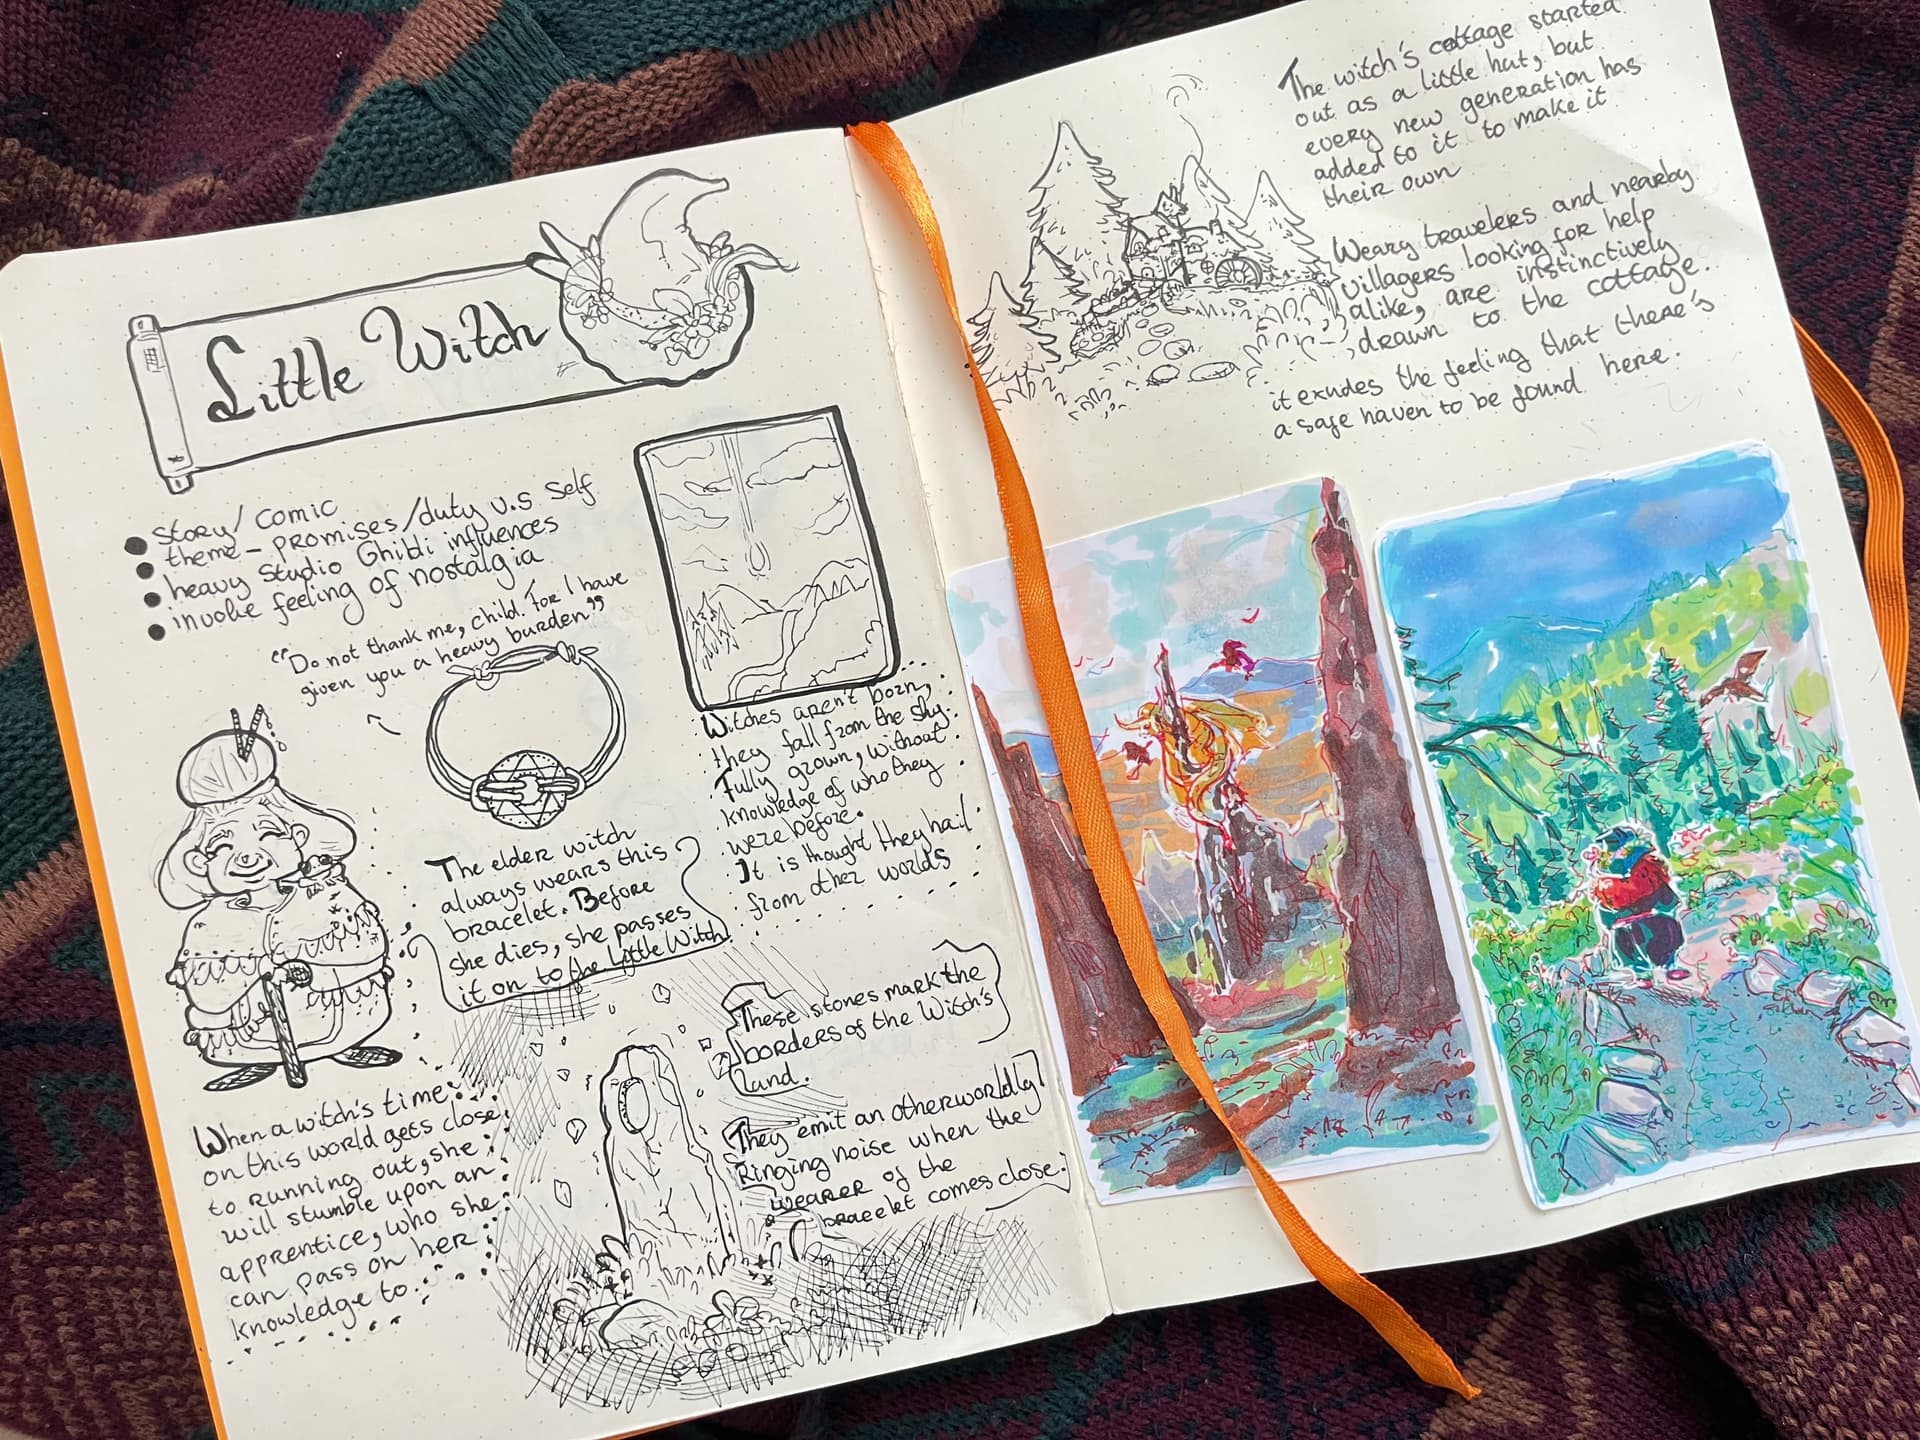 Little Witch
story/ comic
theme - promises/duty v.s self
heavy Studio Ghibli influences
invoke feeling of nostalgia
"Do not thank me, child. For I have
given you a heavy burden"
Witches aren't born,
they fall from the sky.
Fully grown, without
knowledge of who they
were before.
It is thought they hail
from other worlds
The elder witch
always wears this
bracelet. Before
she dies, she passes
it on to the Little Witch
When a witch's time
on this world gets close
to running out, she
will stumble upon an
apprentice, who she
can pass on her
knowledge to.
These stones mark the
borders of the Witch's
land.
They emit an otherworldly
ringing noise when the
wearer of the
bracelet comes close.
The witch's cottage started
out as a little hut, but
every new generation has
added to it to make it
their own
Weary travelers and nearby
villagers looking for help
alike, are instinctively
drawn to the cottage.
it exudes the feeling that there's
a safe haven to be found here.